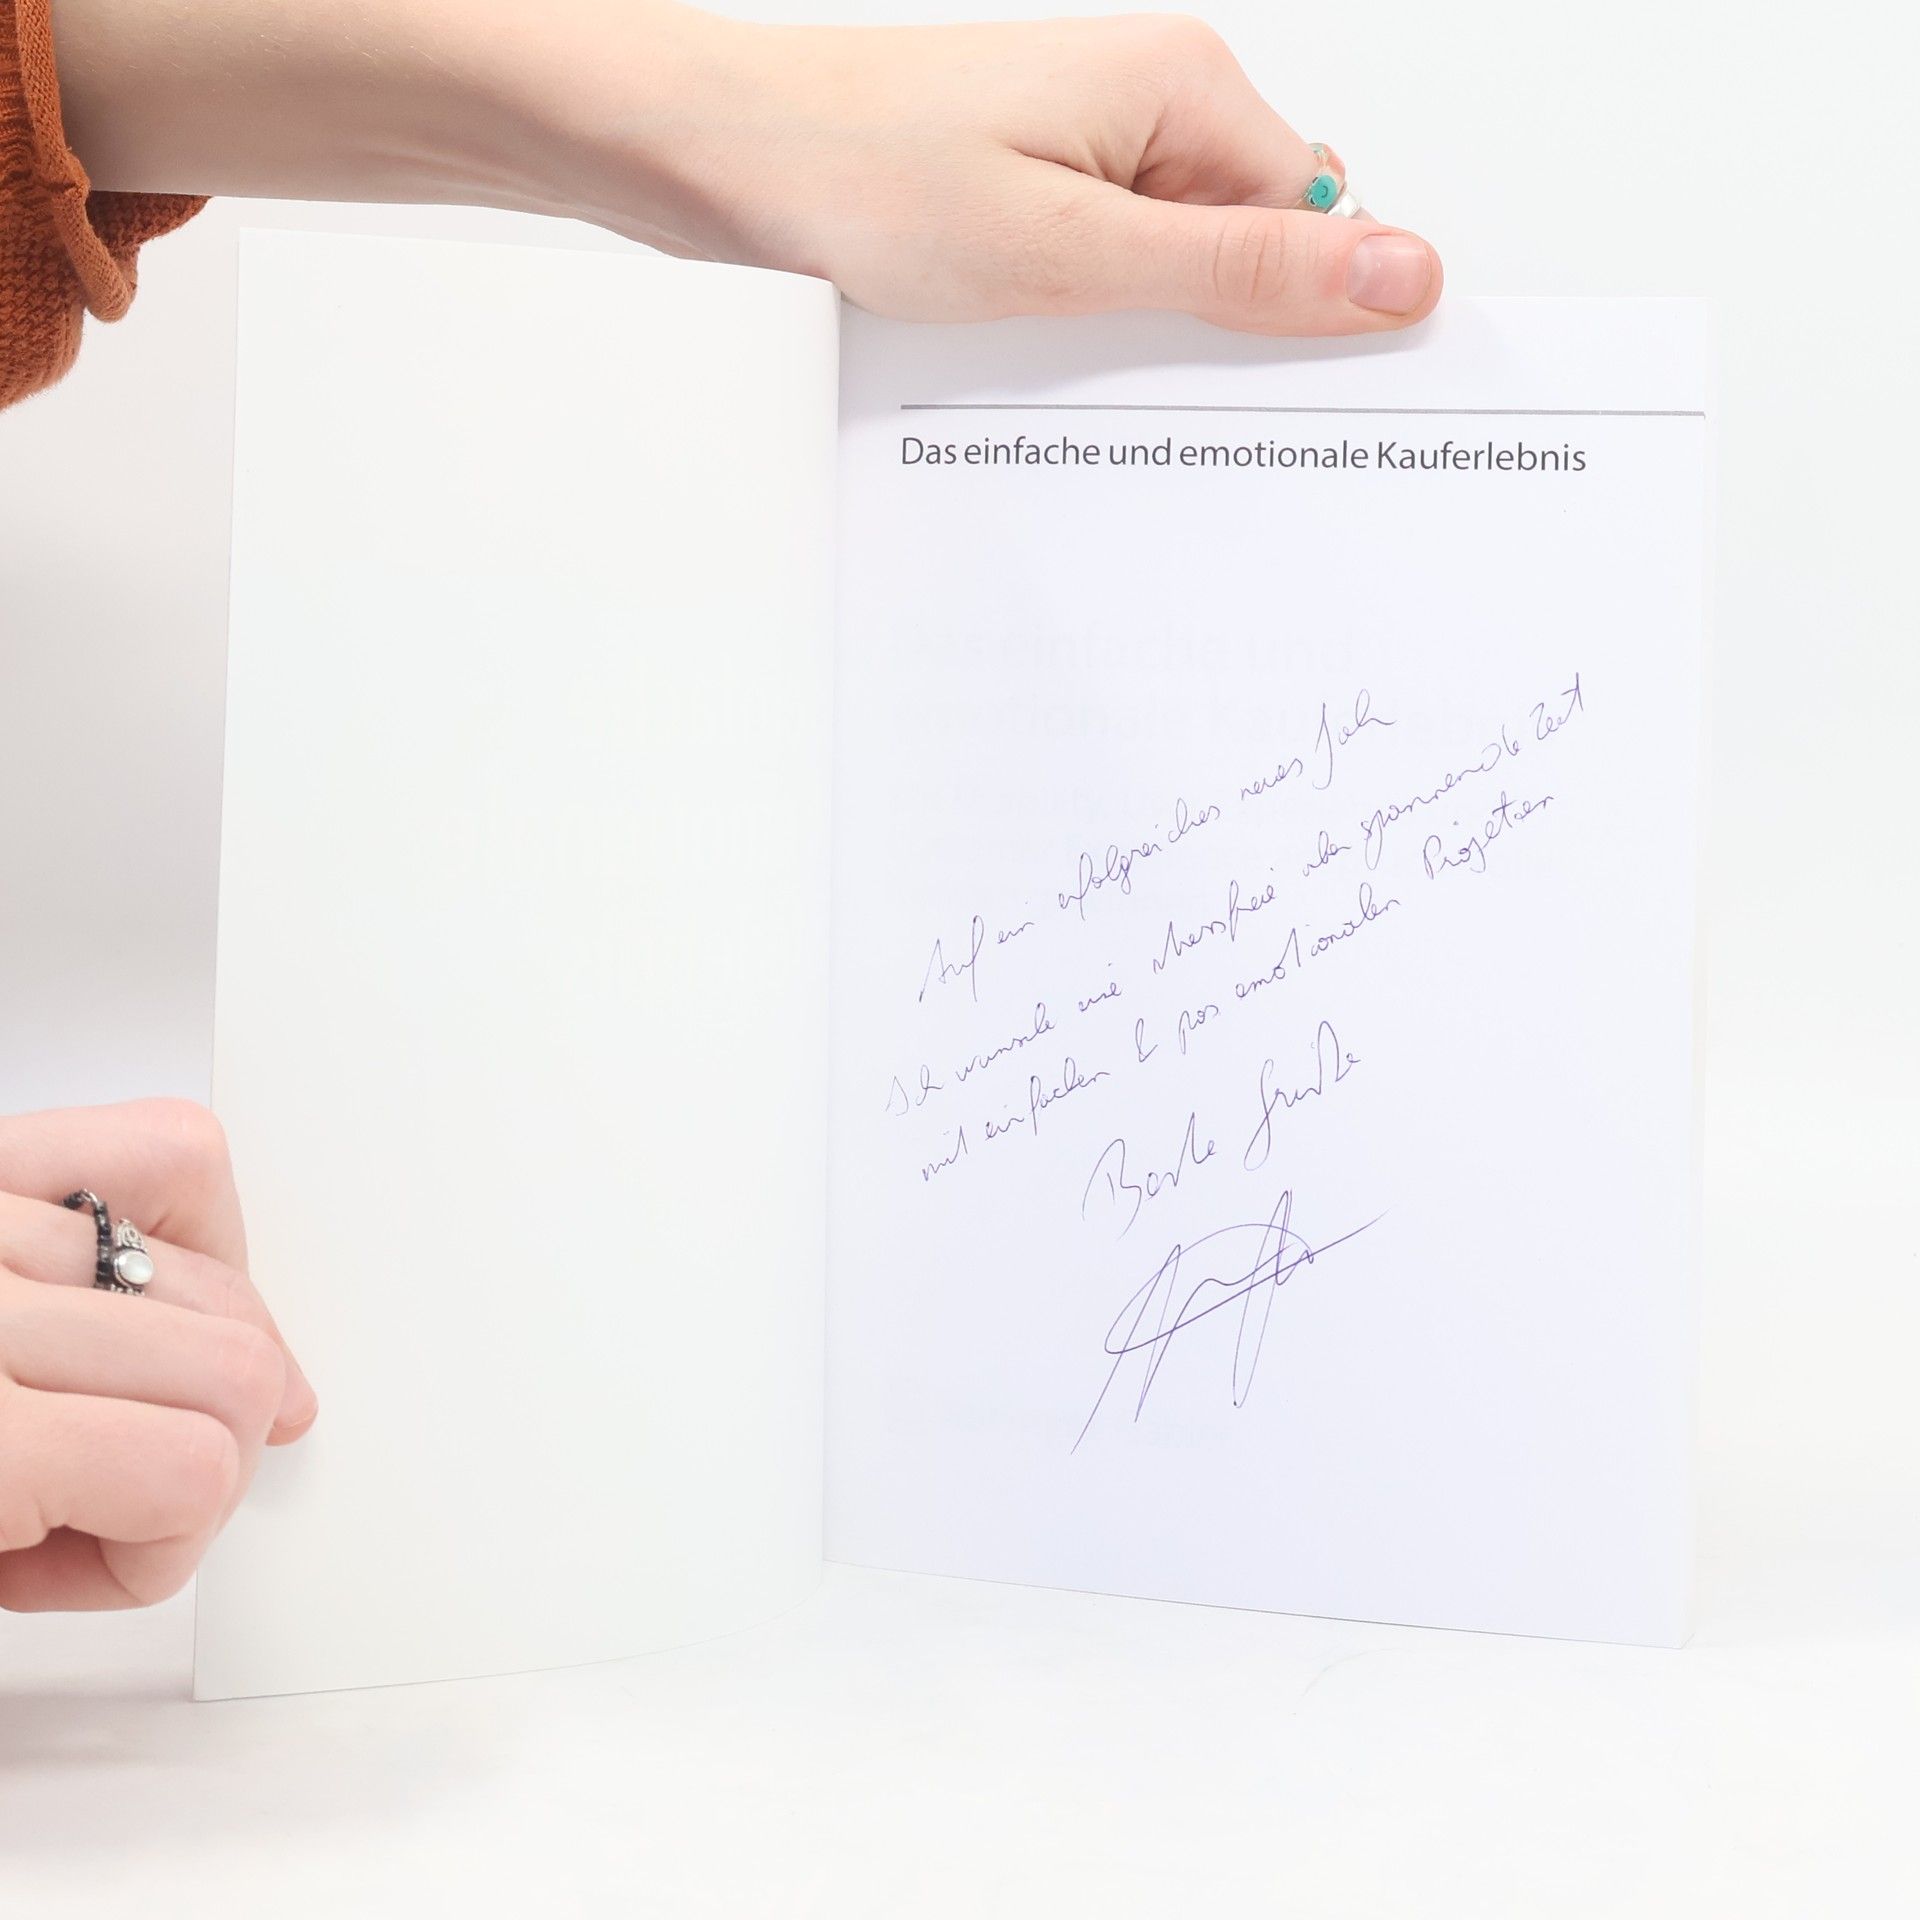 Das einfache und emotionale Kauferlebnis
Auf ein erfolgreiches neues Jahr
Ich wünsche eine stressfreie aber spannende Zeit
mit einfachen & pos emotionalen Projekten
Beste Grüße